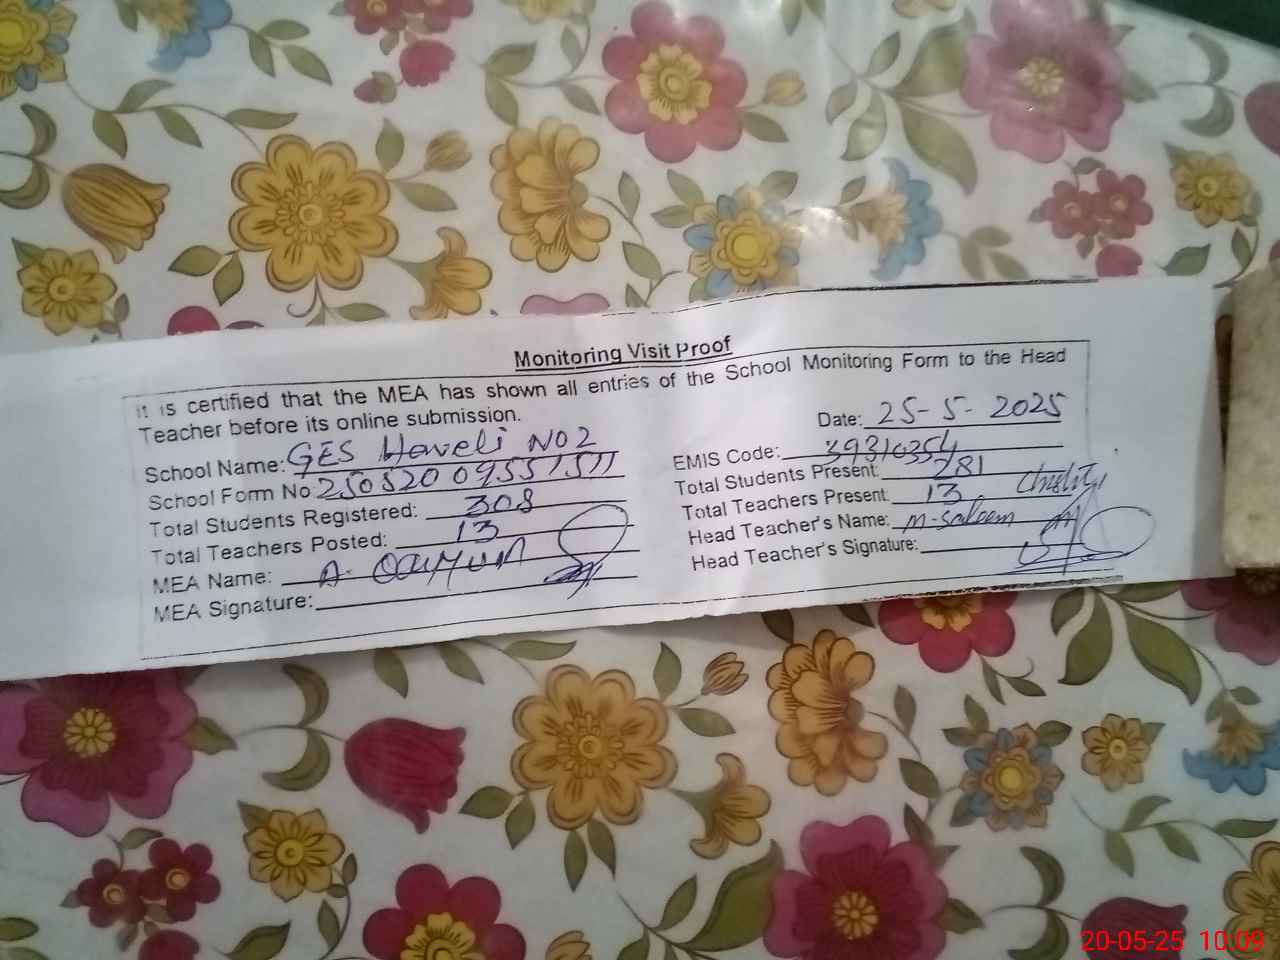 Monitoring Visit Proof
it is certified that the MEA has shown all entries of the School Monitoring Form to the Head
Teacher before its online submission.
Date: 25-5-2025
School Name: GES Haveli No 2
EMIS Code: 39310354
School Form No 250520095515
Total Students Present: 281
Total Students Registered: 308
Total Teachers Present: 13
Total Teachers Posted: 13
Head Teacher's Name: M-Saleem
MEA Name: A. Qayyum
Head Teacher's Signature:
MEA Signature:
20-05-25 10:09